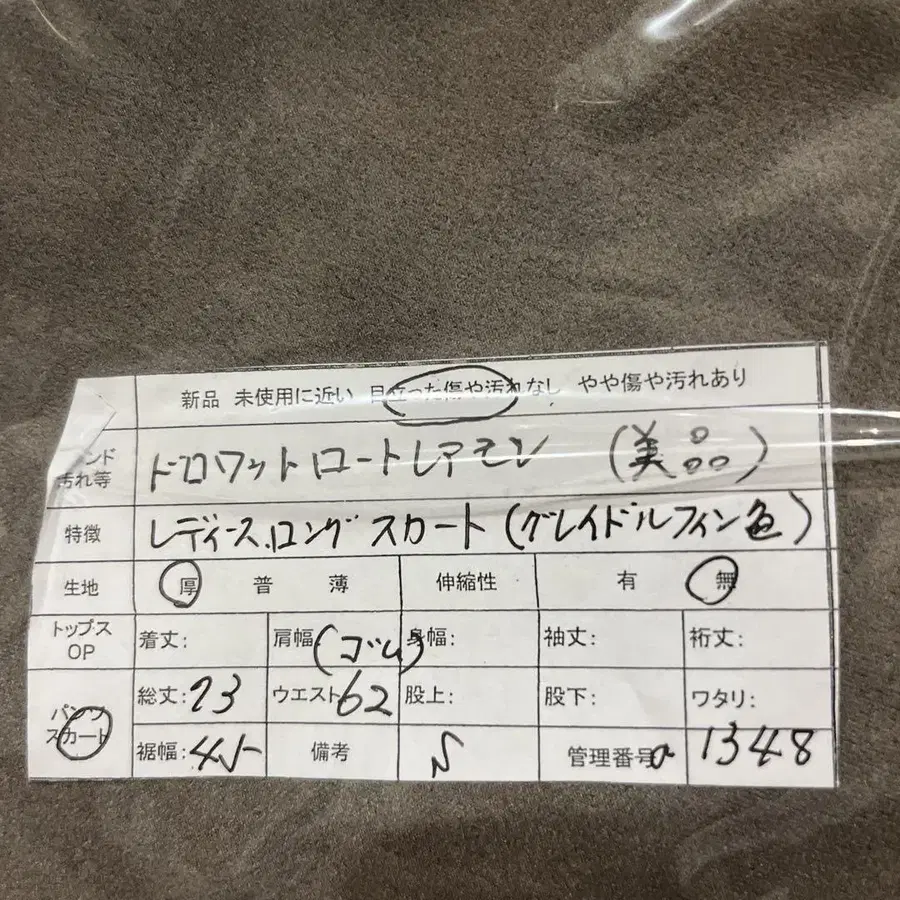 新品 未使用に近い 目立った傷や汚れなし やや傷や汚れあり
ンド
汚れ等
ドロワットロートレアモン (美品)
特徴 レディース.ロングスカート(グレイドルフィン色)
生地 厚 普 薄 伸縮性 有 無
トップス
OP
着丈: 肩幅(ゴム) 身幅: 袖丈: 裄丈:
パンツ
スカート
総丈:73 ウエスト62 股上: 股下: ワタリ:
裾幅:45 備考 S 管理番号a 1348